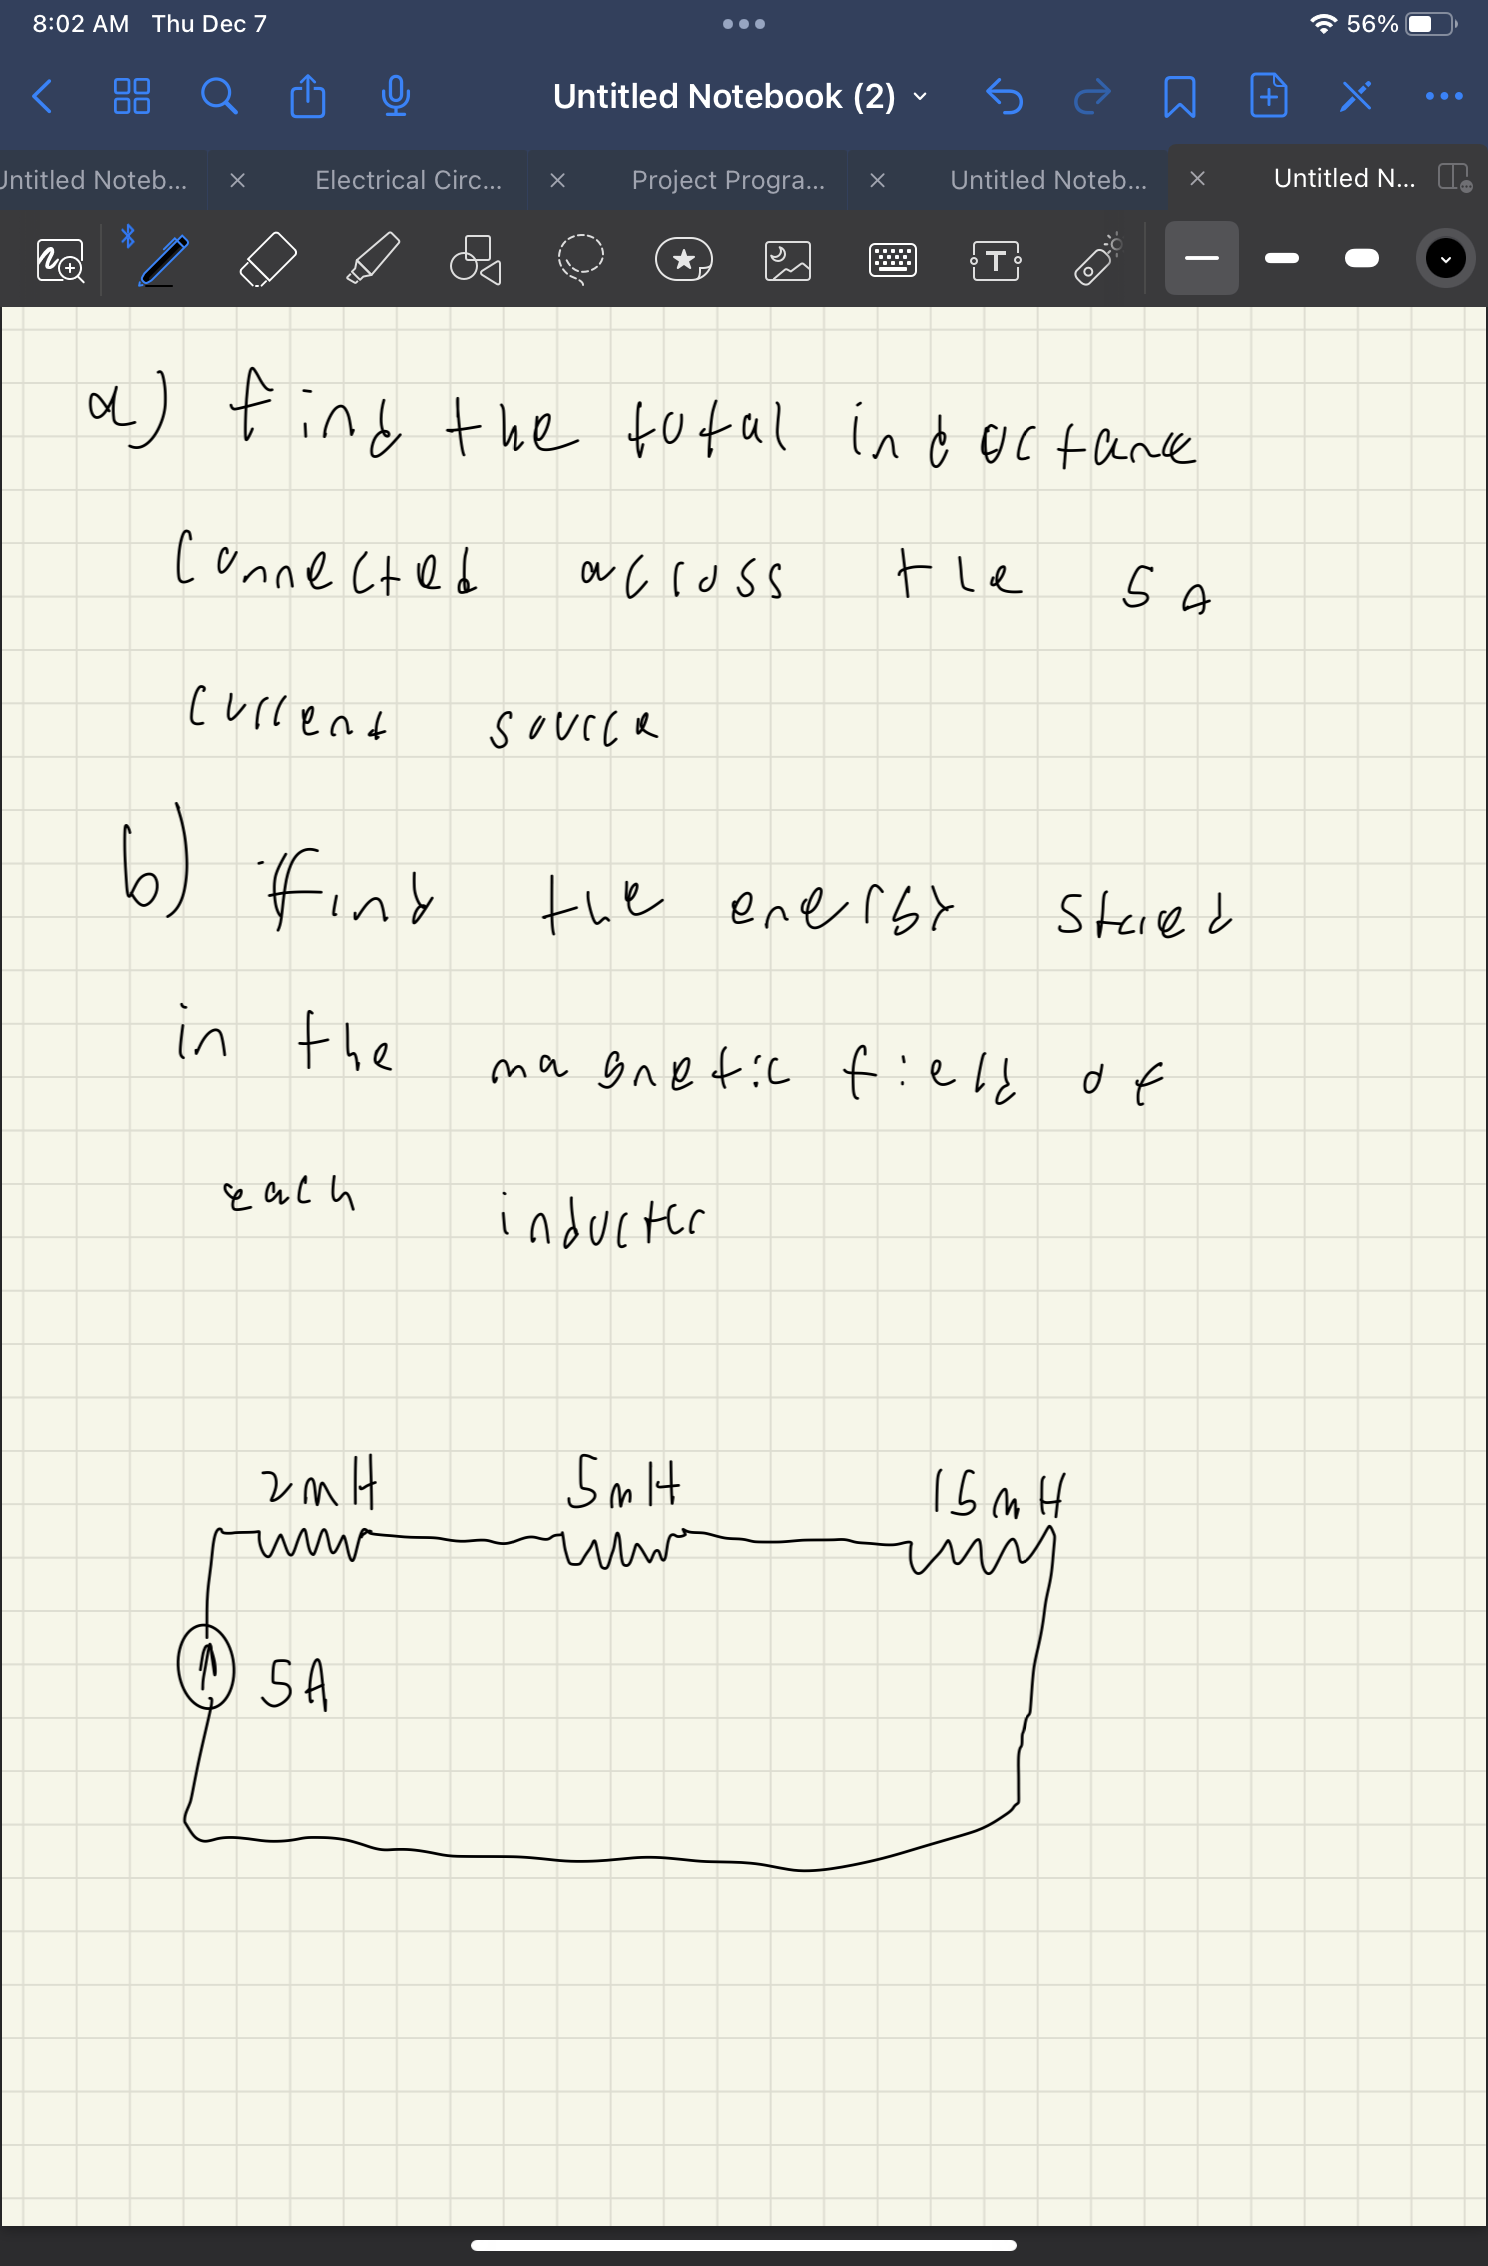 8:02 AM Thu Dec 7
56%
Untitled Notebook (2)
Untitled Noteb...
Electrical Circ...
Project Progra...
Untitled Noteb...
Untitled N...
a) find the total inductance
connected across the 5A
current source
b) find the energy stored
in the magnetic field of
each inductor
2mH 5mH 15mH
5A